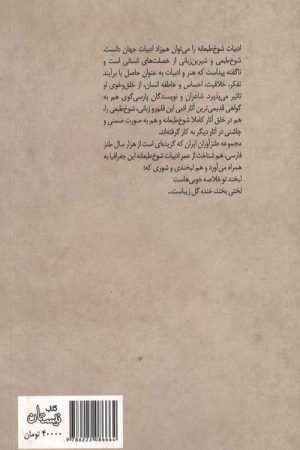 ادبیات شوخ‌طبعانه را می‌توان همزاد ادبیات جهان دانست.
شوخ‌طبعی و شیرین‌زبانی از خصلت‌های انسانی است و
ناگفته پیداست که هنر و ادبیات به عنوان حاصل یا برآیند
تفکر، خلاقیت، احساس و عاطفه انسان، از خلق‌وخوی او
تاثیر می‌پذیرد. شاعران و نویسندگان پارسی‌گوی هم به
گواهی قدیمی‌ترین آثار ادبی این قلمرو زبانی، شوخ‌طبعی را،
هم در خلق آثار کاملا شوخ‌طبعانه و هم به صورت ضمنی و
چاشنی در آثار دیگر به کار گرفته‌اند.
مجموعه طنزآوران ایران که گزیده‌ای است از هزار سال طنز
فارسی، هم شناخت از عمر ادبیات شوخ‌طبعانه این جغرافیا به
همراه می‌آورد و هم لبخندی و شوری که؛
لبخند تو خلاصه خوبی‌هاست
لختی بخند، خنده گل زیباست...
کتاب
نیستان
۴۰۰۰۰ تومان
9 786222 086664